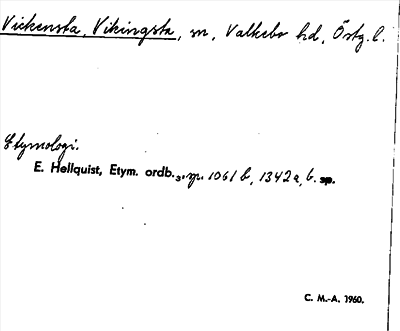 Vickensta, Vikingsta, sn, Valkebo hd, Östg. l.
Etymologi.
E. Hellquist, Etym. ordb. 3. uppl. 1061 b, 1342 a, b. sp.
C. M.-A. 1960.